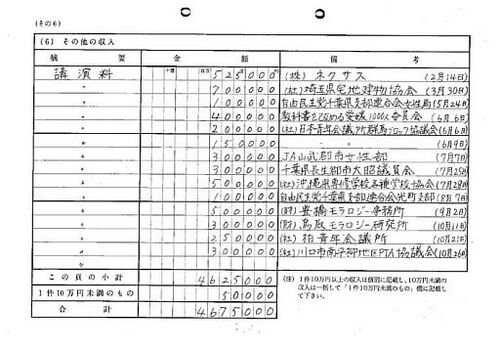 (その6)
(6) その他の収入
摘 要 金 額 備 考
十億 百万 円
講演料 525000 (株) ネクサス (2月14日)
〃 700000 (社)埼玉県宅地建物協会 (3月30日)
〃 100000 自由民主党千葉県支部連合会女性局 (5月24日)
〃 400000 教科書を改める愛媛1000人委員会 (6月6日)
〃 200000 (社)日本青年会議所群馬ブロック協議会 (6月6日)
〃 150000 〃 (6月9日)
〃 300000 JA山武郡市女性部 (7月7日)
〃 300000 千葉県長生郡市太昭議員会 (7月25日)
〃 500000 (社)沖縄県専修学校各種学校協会 (7月28日)
〃 100000 自由民主党千葉県支部連合会光町支部 (8月7日)
〃 500000 (財)豊橋モラロジー事務所 (9月2日)
〃 300000 (財)鳥取モラロジー研究所 (10月11日)
〃 250000 (社)柏青年会議所 (10月21日)
〃 300000 (社)川口市南平部地区PTA協議会 (10月26日)
この頁の小計 4625000
1件10万円未満のもの 50000
合 計 4675000
(注) 1件10万円以上の収入は個別に記載し、10万円未満の
収入は一括して「1件10万円未満のもの」欄に記載し
て下さい。